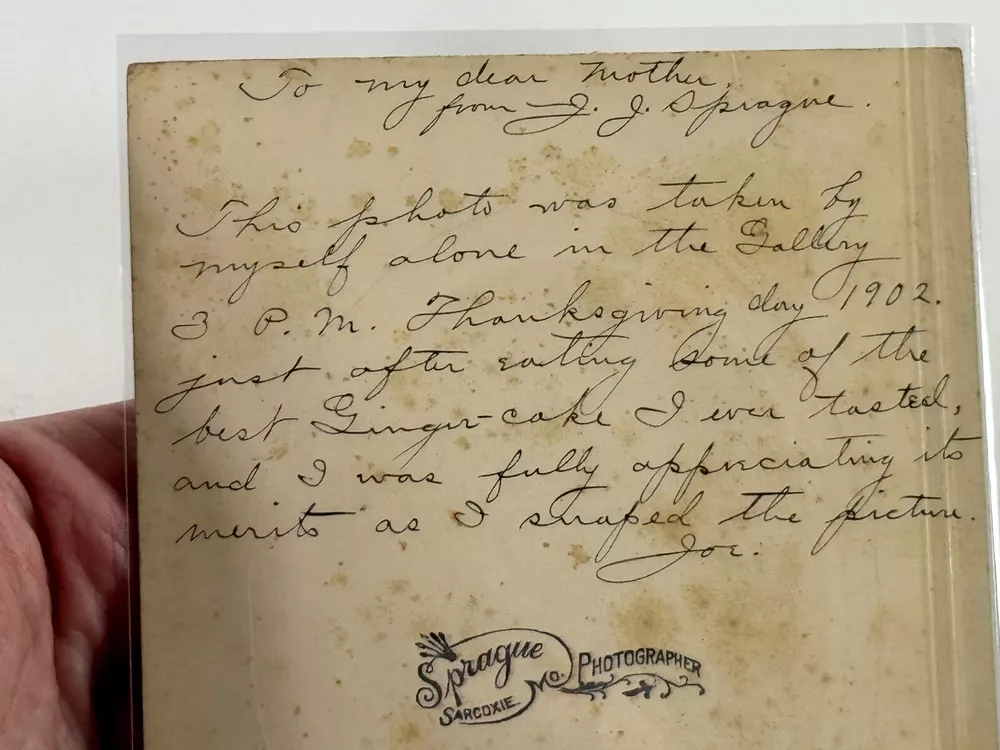 To my dear Mother,
from J. J. Sprague.
This photo was taken by
myself alone in the Gallery
3 P. M. Thanksgiving day 1902.
just after eating some of the
best Ginger-cake I ever tasted,
and I was fully appreciating its
merits as I snaped the picture.
Joe.
Sprague
PHOTOGRAPHER
SARCOXIE Mo.